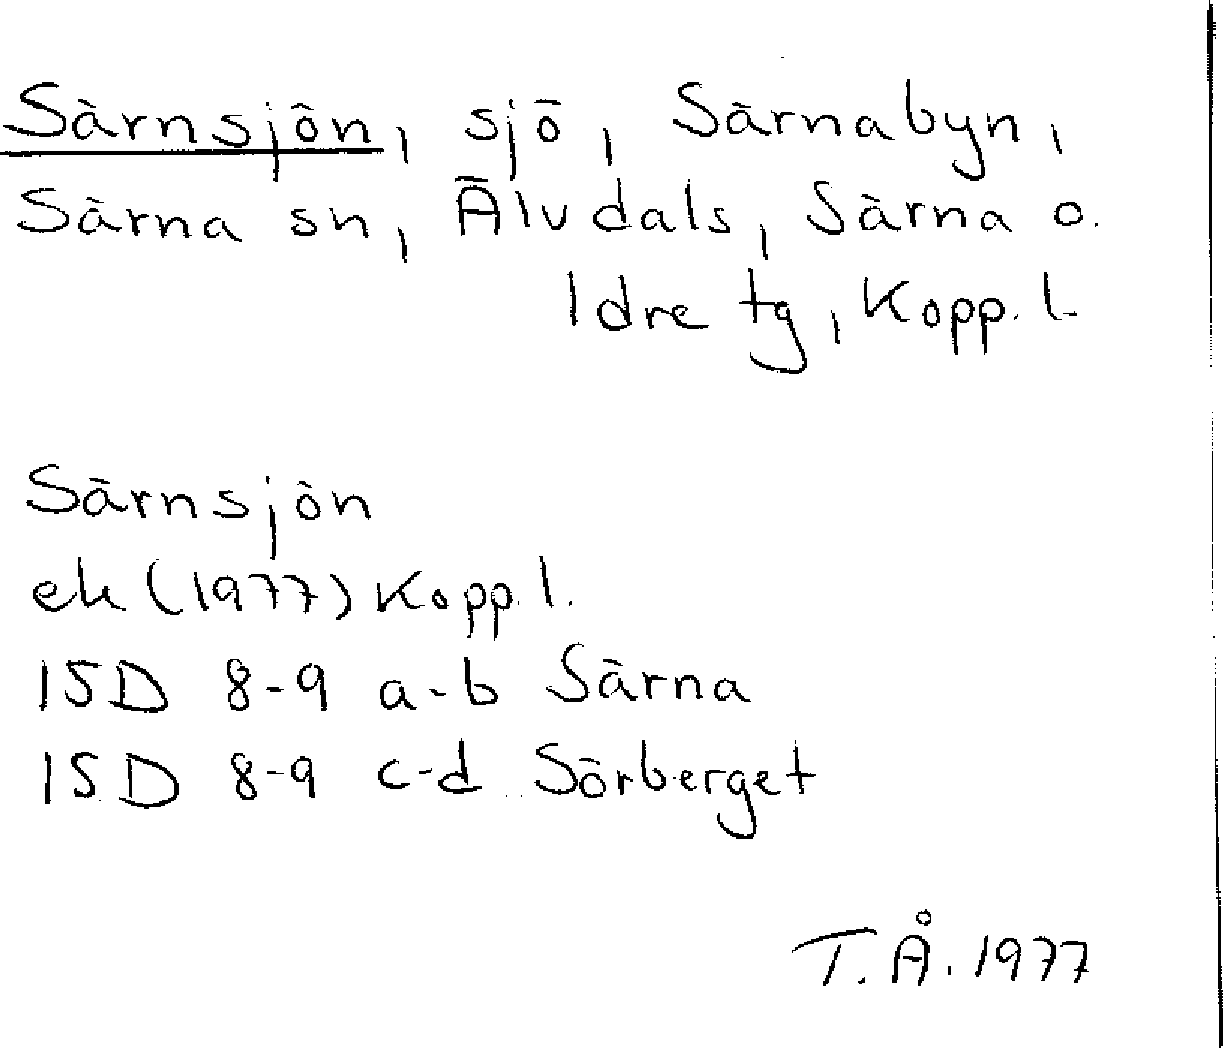 Särnsjön, sjö, Särnabyn,
Särna sn, Älvdals, Särna o.
Idre tg, Kopp. l.
Särnsjön
ek (1977) Kopp. l.
15D 8-9 a-b Särna
15D 8-9 c-d Sörberget
T.Å. 1977